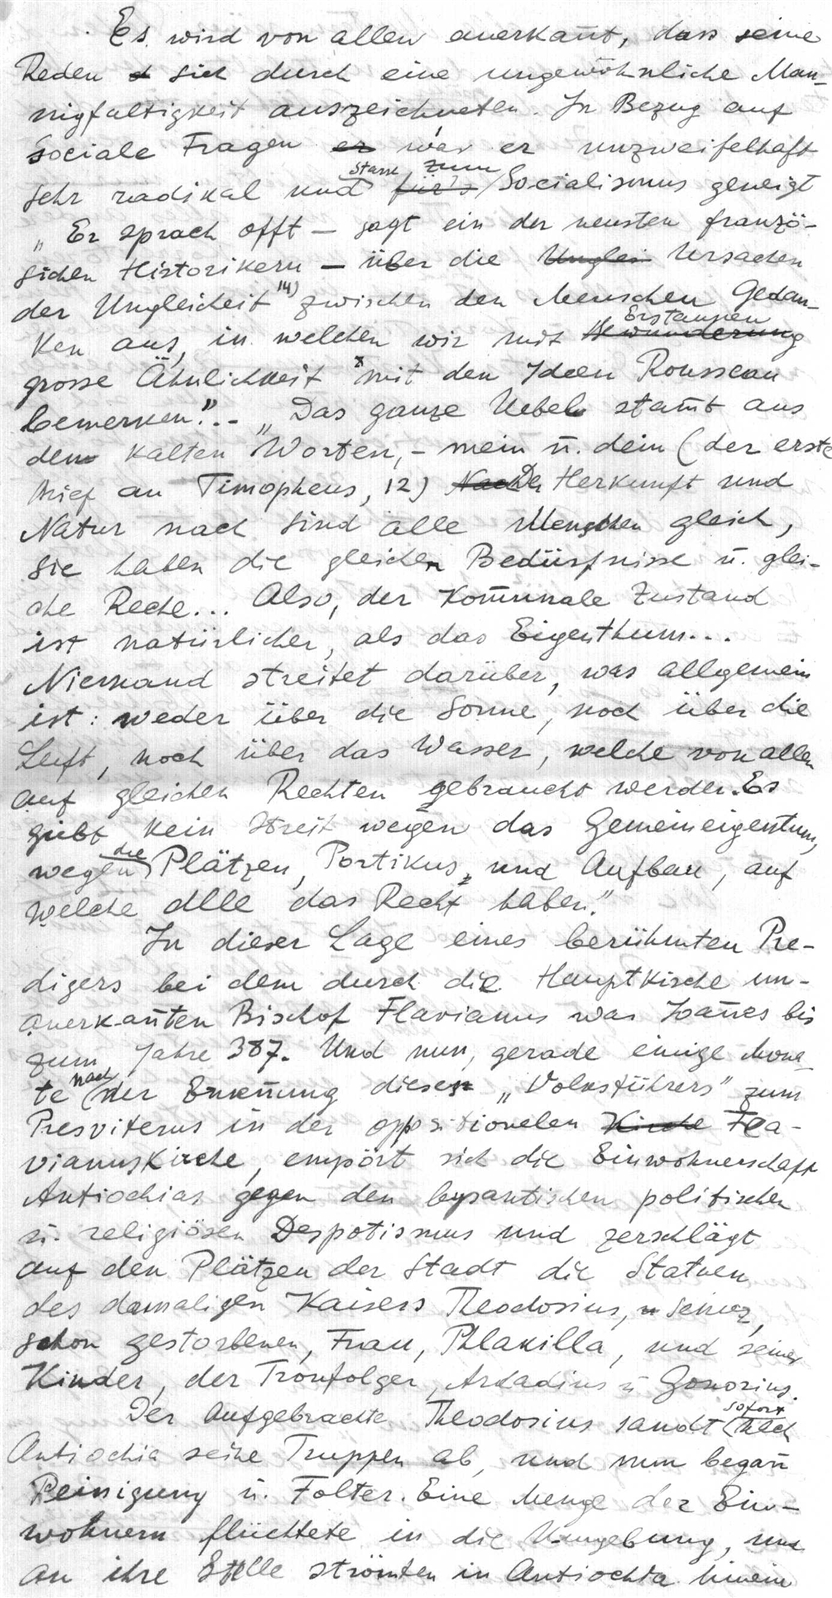 Es wird von allen anerkan̄t, dass seine
Reden sich durch eine ungewöhnliche Man-
nigfaltigkeit auszeichneten. In Bezug auf
Sociale Fragen er war er unzweifelhaft
sehr radikal und stark zum für's Socialismus geneigt
„Er sprach offt — sagt ein der neusten franzö-
sichen Historikern — über die Unglei Ursachen
der Ungleicheit 14) zwischen den Menschen Gedan-
ken aus, in welchen wir mit Erstaunen Bewunderung
grosse Ähnlichkeit mit den Ideen Rousseau
bemerken." .. „Das ganze Uebel stam̄t aus
den kalten Worten, – mein u. dein (der erste
brief an Timopheus, 12) Nach Der Herkunft und
Natur nach sind alle Menschen gleich,
sie haben die gleichen Bedürfnisse u. glei-
che Reche... Also, der Kom̄unale Zustand
ist natürlicher, als das Eigenthum...
Niemand streitet darüber, was allgemein
ist: weder über die Sonne, noch über die
Luft, noch über das Wasser, welche von allen
auf gleichen Rechten gebraucht werden. Es
giebt kein Streit wegen das Gemeineigentum,
wegen die Plätzen, Portikus, und Aufbau, auf
welche alle das Recht haben."
In dieser Lage eines berühmten Pre-
digers bei dem durch die Hauptkirche un-
anerkan̄ten Bischof Flavianus was Ioan̄es bis
zum Jahre 387. Und nun, gerade einige Mona-
te nach der Ernen̄ung dieser „Volksführers" zum
Presviterus in der oppositionelen Kirche Fla-
vianuskirche, empört sich die Einwohnerschaft
Antiochias gegen den bysantischen politischen
u. religiösen Despotismus und zerschlägt
auf den Plätzen der Stadt die Statuen
des damaligen Kaisers Theodosius, seiner,
schon gestorbenen, Frau, Phlakilla, und seiner
Kinder, der Tronfolger, Arkadius u Gonorius.
Der Aufgebrachte Theodosius sandt sofort nach
Antiochia seine Truppen ab, und nun began̄
Peinigung u. Folter. Eine Menge der Ein-
wohnern flüchtete in die Umgebung, und
an ihre Stelle strömten in Antiochia hinein